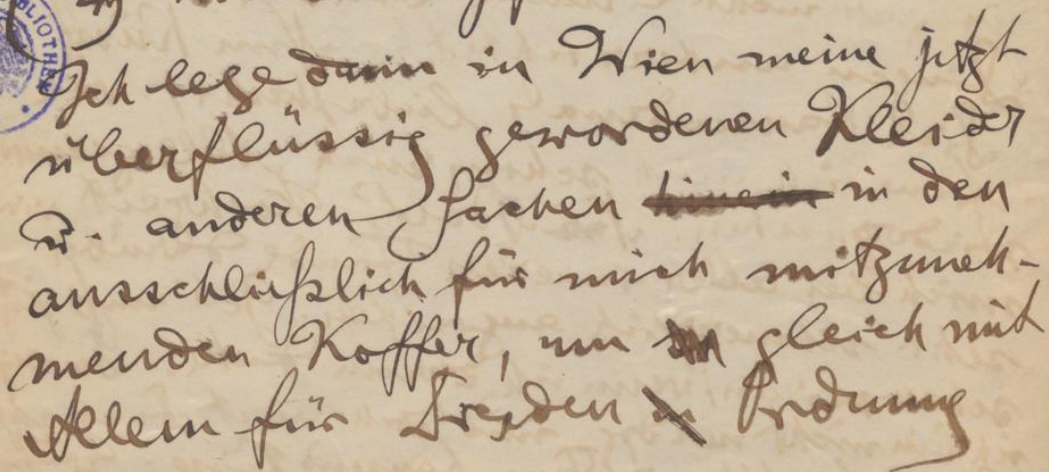 BLIOTHEK
Ich lege dann in Wien meine jetzt
überflüssig gewordenen Kleider
u. anderen Sachen hinein in den
ausschließlich für mich mitzuneh-
menden Koffer, um gleich mit
Allem für Dresden in Ordnung